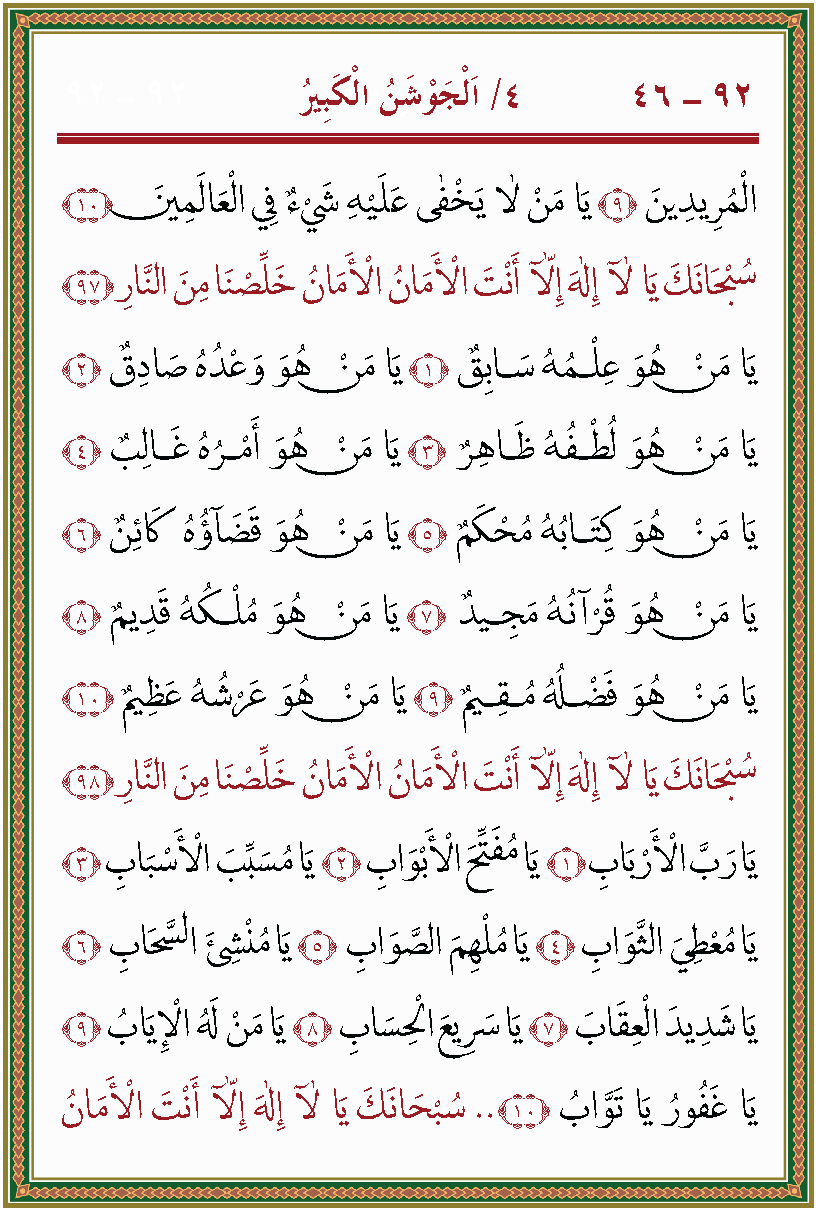 ٩٢ – ٤٦ ٤/ اَلْجَوْشَنُ الْكَبِيرُ ٩٢ – ٩٢
الْمُرِيدِينَ ﴿٩﴾ يَا مَنْ لَا يَخْفٰى عَلَيْهِ شَيْءٌ فِي الْعَالَمِينَ ﴿١٠﴾
سُبْحَانَكَ يَا لَآ إِلٰهَ إِلَّآ أَنْتَ الْأَمَانُ الْأَمَانُ خَلِّصْنَا مِنَ النَّارِ ﴿٩٧﴾
يَا مَنْ هُوَ عِلْمُهُ سَابِقٌ ﴿١﴾ يَا مَنْ هُوَ وَعْدُهُ صَادِقٌ ﴿٢﴾
يَا مَنْ هُوَ لُطْفُهُ ظَاهِرٌ ﴿٣﴾ يَا مَنْ هُوَ أَمْرُهُ غَالِبٌ ﴿٤﴾
يَا مَنْ هُوَ كِتَابُهُ مُحْكَمٌ ﴿٥﴾ يَا مَنْ هُوَ قَضَآؤُهُ كَائِنٌ ﴿٦﴾
يَا مَنْ هُوَ قُرْآنُهُ مَجِيدٌ ﴿٧﴾ يَا مَنْ هُوَ مُلْكُهُ قَدِيمٌ ﴿٨﴾
يَا مَنْ هُوَ فَضْلُهُ مُقِيمٌ ﴿٩﴾ يَا مَنْ هُوَ عَرْشُهُ عَظِيمٌ ﴿١٠﴾
سُبْحَانَكَ يَا لَآ إِلٰهَ إِلَّآ أَنْتَ الْأَمَانُ الْأَمَانُ خَلِّصْنَا مِنَ النَّارِ ﴿٩٨﴾
يَا رَبَّ الْأَرْبَابِ ﴿١﴾ يَا مُفَتِّحَ الْأَبْوَابِ ﴿٢﴾ يَا مُسَبِّبَ الْأَسْبَابِ ﴿٣﴾
يَا مُعْطِيَ الثَّوَابِ ﴿٤﴾ يَا مُلْهِمَ الصَّوَابِ ﴿٥﴾ يَا مُنْشِئَ السَّحَابِ ﴿٦﴾
يَا شَدِيدَ الْعِقَابَ ﴿٧﴾ يَا سَرِيعَ الْحِسَابِ ﴿٨﴾ يَا مَنْ لَهُ الْإِيَابُ ﴿٩﴾
يَا غَفُورُ يَا تَوَّابُ ﴿١٠﴾ .. سُبْحَانَكَ يَا لَآ إِلٰهَ إِلَّآ أَنْتَ الْأَمَانُ